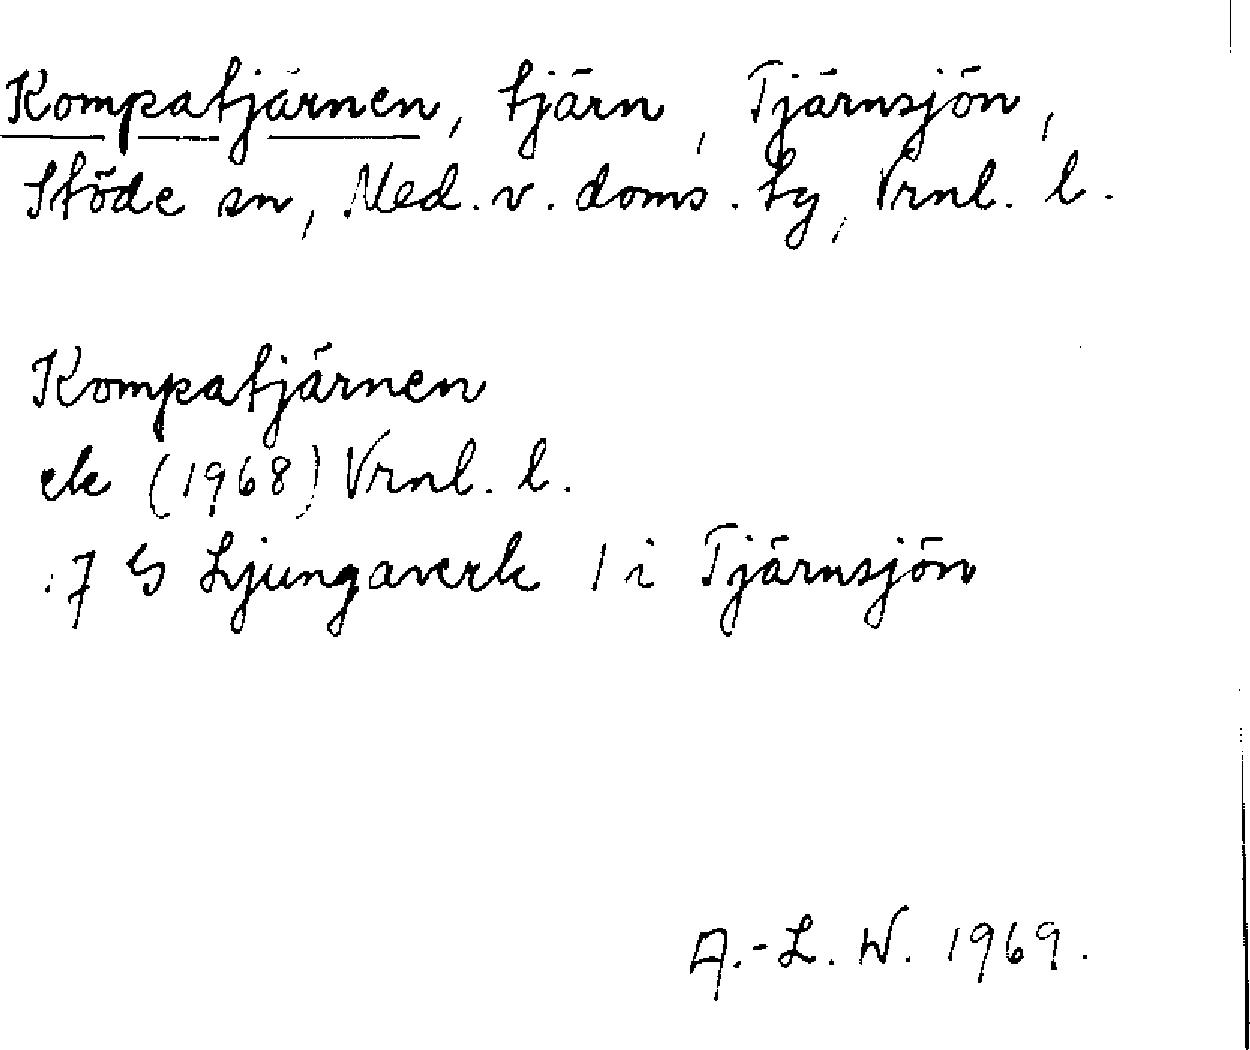 Kompatjärnen, tjärn, Tjärnsjön,
Stöde sn, Med. v. doms. tg, Vrnl. l.
Kompatjärnen
ek (1968) Vrnl. l.
17 G Ljungaverk 1 i Tjärnsjön
A.-L. W. 1969.